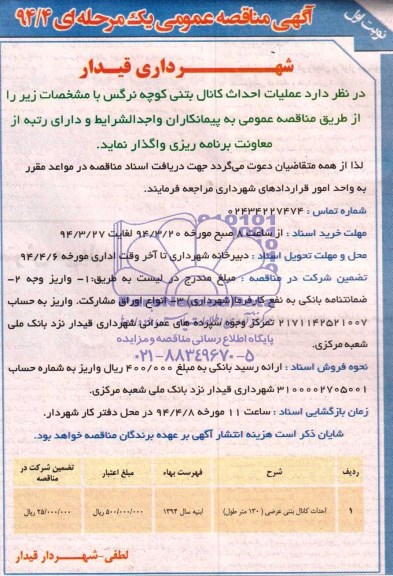 نوبت اول
آگهی مناقصه عمومی یک مرحله‌ای ۹۴/۴
شهرداری قیدار
در نظر دارد عملیات احداث کانال بتنی کوچه نرگس با مشخصات زیر را
از طریق مناقصه عمومی به پیمانکاران واجدالشرایط و دارای رتبه از
معاونت برنامه ریزی واگذار نماید.
لذا از همه متقاضیان دعوت می‌گردد جهت دریافت اسناد مناقصه در مواعد مقرر
به واحد امور قراردادهای شهرداری مراجعه فرمایند.
شماره تماس : ۰۲۴۳۴۲۲۷۴۷۴
مهلت خرید اسناد : از ساعت ۸ صبح مورخه ۹۴/۳/۲۰ لغایت ۹۴/۳/۲۷
محل و مهلت تحویل اسناد : دبیرخانه شهرداری تا آخر وقت اداری مورخه ۹۴/۴/۶
تضمین شرکت در مناقصه : مبلغ مندرج در لیست به طریق:۱- واریز وجه ۲-
ضمانتنامه بانکی به نفع کارفرما(شهرداری) ۳- انواع اوراق مشارکت. واریز به حساب
۲۱۷۱۱۴۲۵۲۱۰۰۷ تمرکز وجوه سپرده های عمرانی شهرداری قیدار نزد بانک ملی
شعبه مرکزی.
پایگاه اطلاع رسانی مناقصه و مزایده
۰۲۱-۸۸۳۴۹۶۷۰-۵
نحوه فروش اسناد : ارائه رسید بانکی به مبلغ ۴۰۰/۰۰۰ ریال واریز به شماره حساب
۳۱۰۰۰۰۲۷۰۵۰۰۱ شهرداری قیدار نزد بانک ملی شعبه مرکزی.
زمان بازگشایی اسناد : ساعت ۱۱ مورخه ۹۴/۴/۸ در محل دفتر کار شهردار.
شایان ذکر است هزینه انتشار آگهی بر عهده برندگان مناقصه خواهد بود.
ردیف شرح فهرست بهاء مبلغ اعتبار تضمین شرکت در مناقصه
۱ احداث کانال بتنی عرضی (۱۳۰ متر طول) ابنیه سال ۱۳۹۴ ۵۰۰/۰۰۰/۰۰۰ ریال ۲۵/۰۰۰/۰۰۰ ریال
لطفی-شهردار قیدار